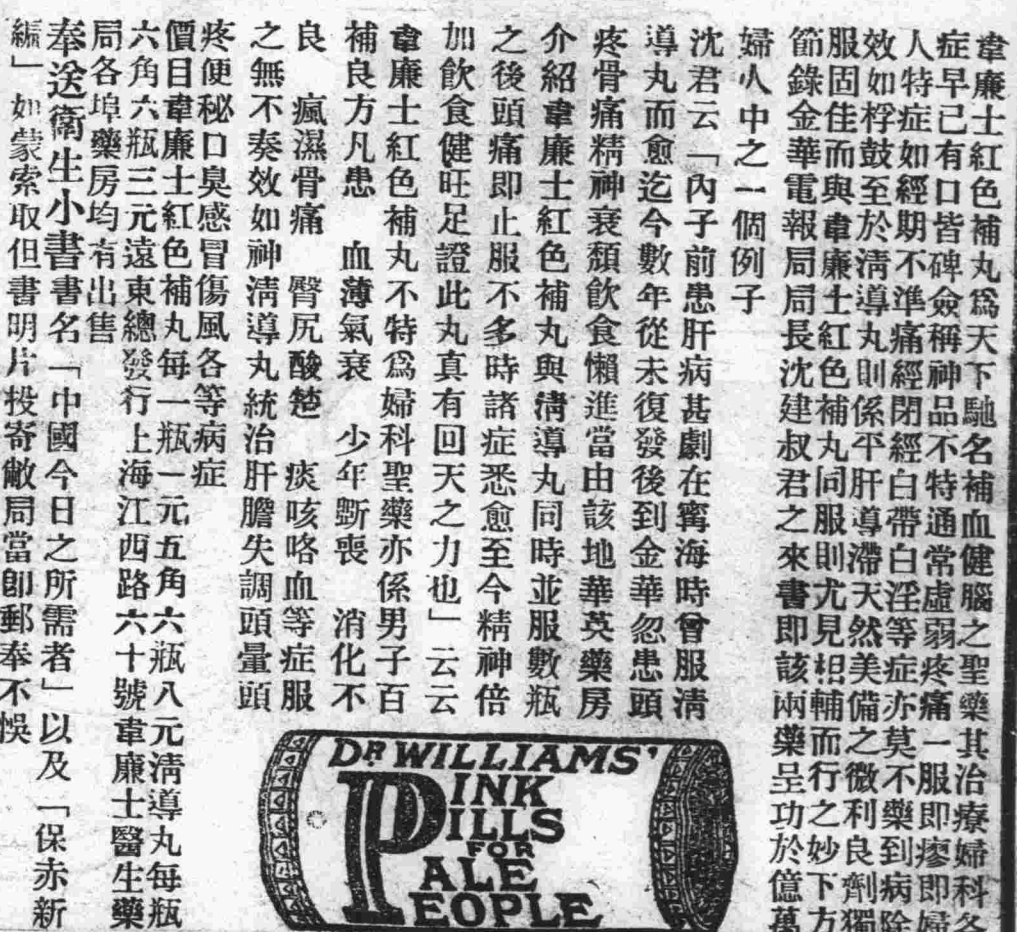 韋廉士紅色補丸爲天下馳名補血健腦之聖藥其治療婦科各
症早已有口皆碑僉稱神品不特通常虛弱疼痛一服即瘳即婦
人特症如經期不準痛經閉經白帶白淫等症亦莫不藥到病除
效如桴鼓至於淸導丸則係平肝導滯天然美備之微利良劑獨
服固佳而與韋廉士紅色補丸同服則尤見相輔而行之妙下方
節錄金華電報局局長沈建叔君之來書即該兩藥呈功於億萬
婦人中之一個例子
沈君云「內子前患肝病甚劇在寗海時曾服淸
導丸而愈迄今數年從未復發後到金華忽患頭
疼骨痛精神衰頹飲食懶進當由該地華英藥房
介紹韋廉士紅色補丸與淸導丸同時並服數瓶
之後頭痛即止服不多時諸症悉愈至今精神倍
加飲食健旺足證此丸真有回天之力也」云云
韋廉士紅色補丸不特爲婦科聖藥亦係男子百
補良方凡患　血薄氣衰　少年斵喪　消化不
良　瘋濕骨痛　臀尻酸楚　痰咳咯血等症服
之無不奏效如神淸導丸統治肝膽失調頭暈頭
疼便秘口臭感冒傷風各等病症
價目韋廉士紅色補丸每一瓶一元五角六瓶八元淸導丸每瓶
六角六瓶三元遠東總發行上海江西路六十號韋廉士醫生藥
局各埠藥房均有出售
奉送衞生小書書名「中國今日之所需者」以及「保赤新
編」如蒙索取但書明片投寄敝局當卽郵奉不悞
DR WILLIAMS'
PINK
PILLS
FOR
PALE
PEOPLE